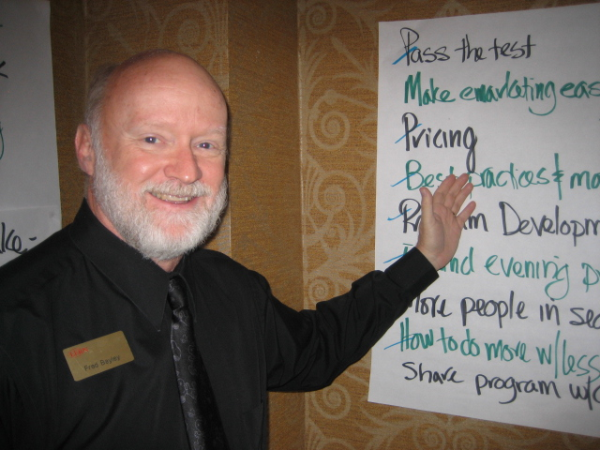 Pass the test
Make emarketing eas
Pricing
Best Practices & mo
Program Developm
and evening p
More people in sea
How to do more w/less
Share program w/o
ke-
Fred